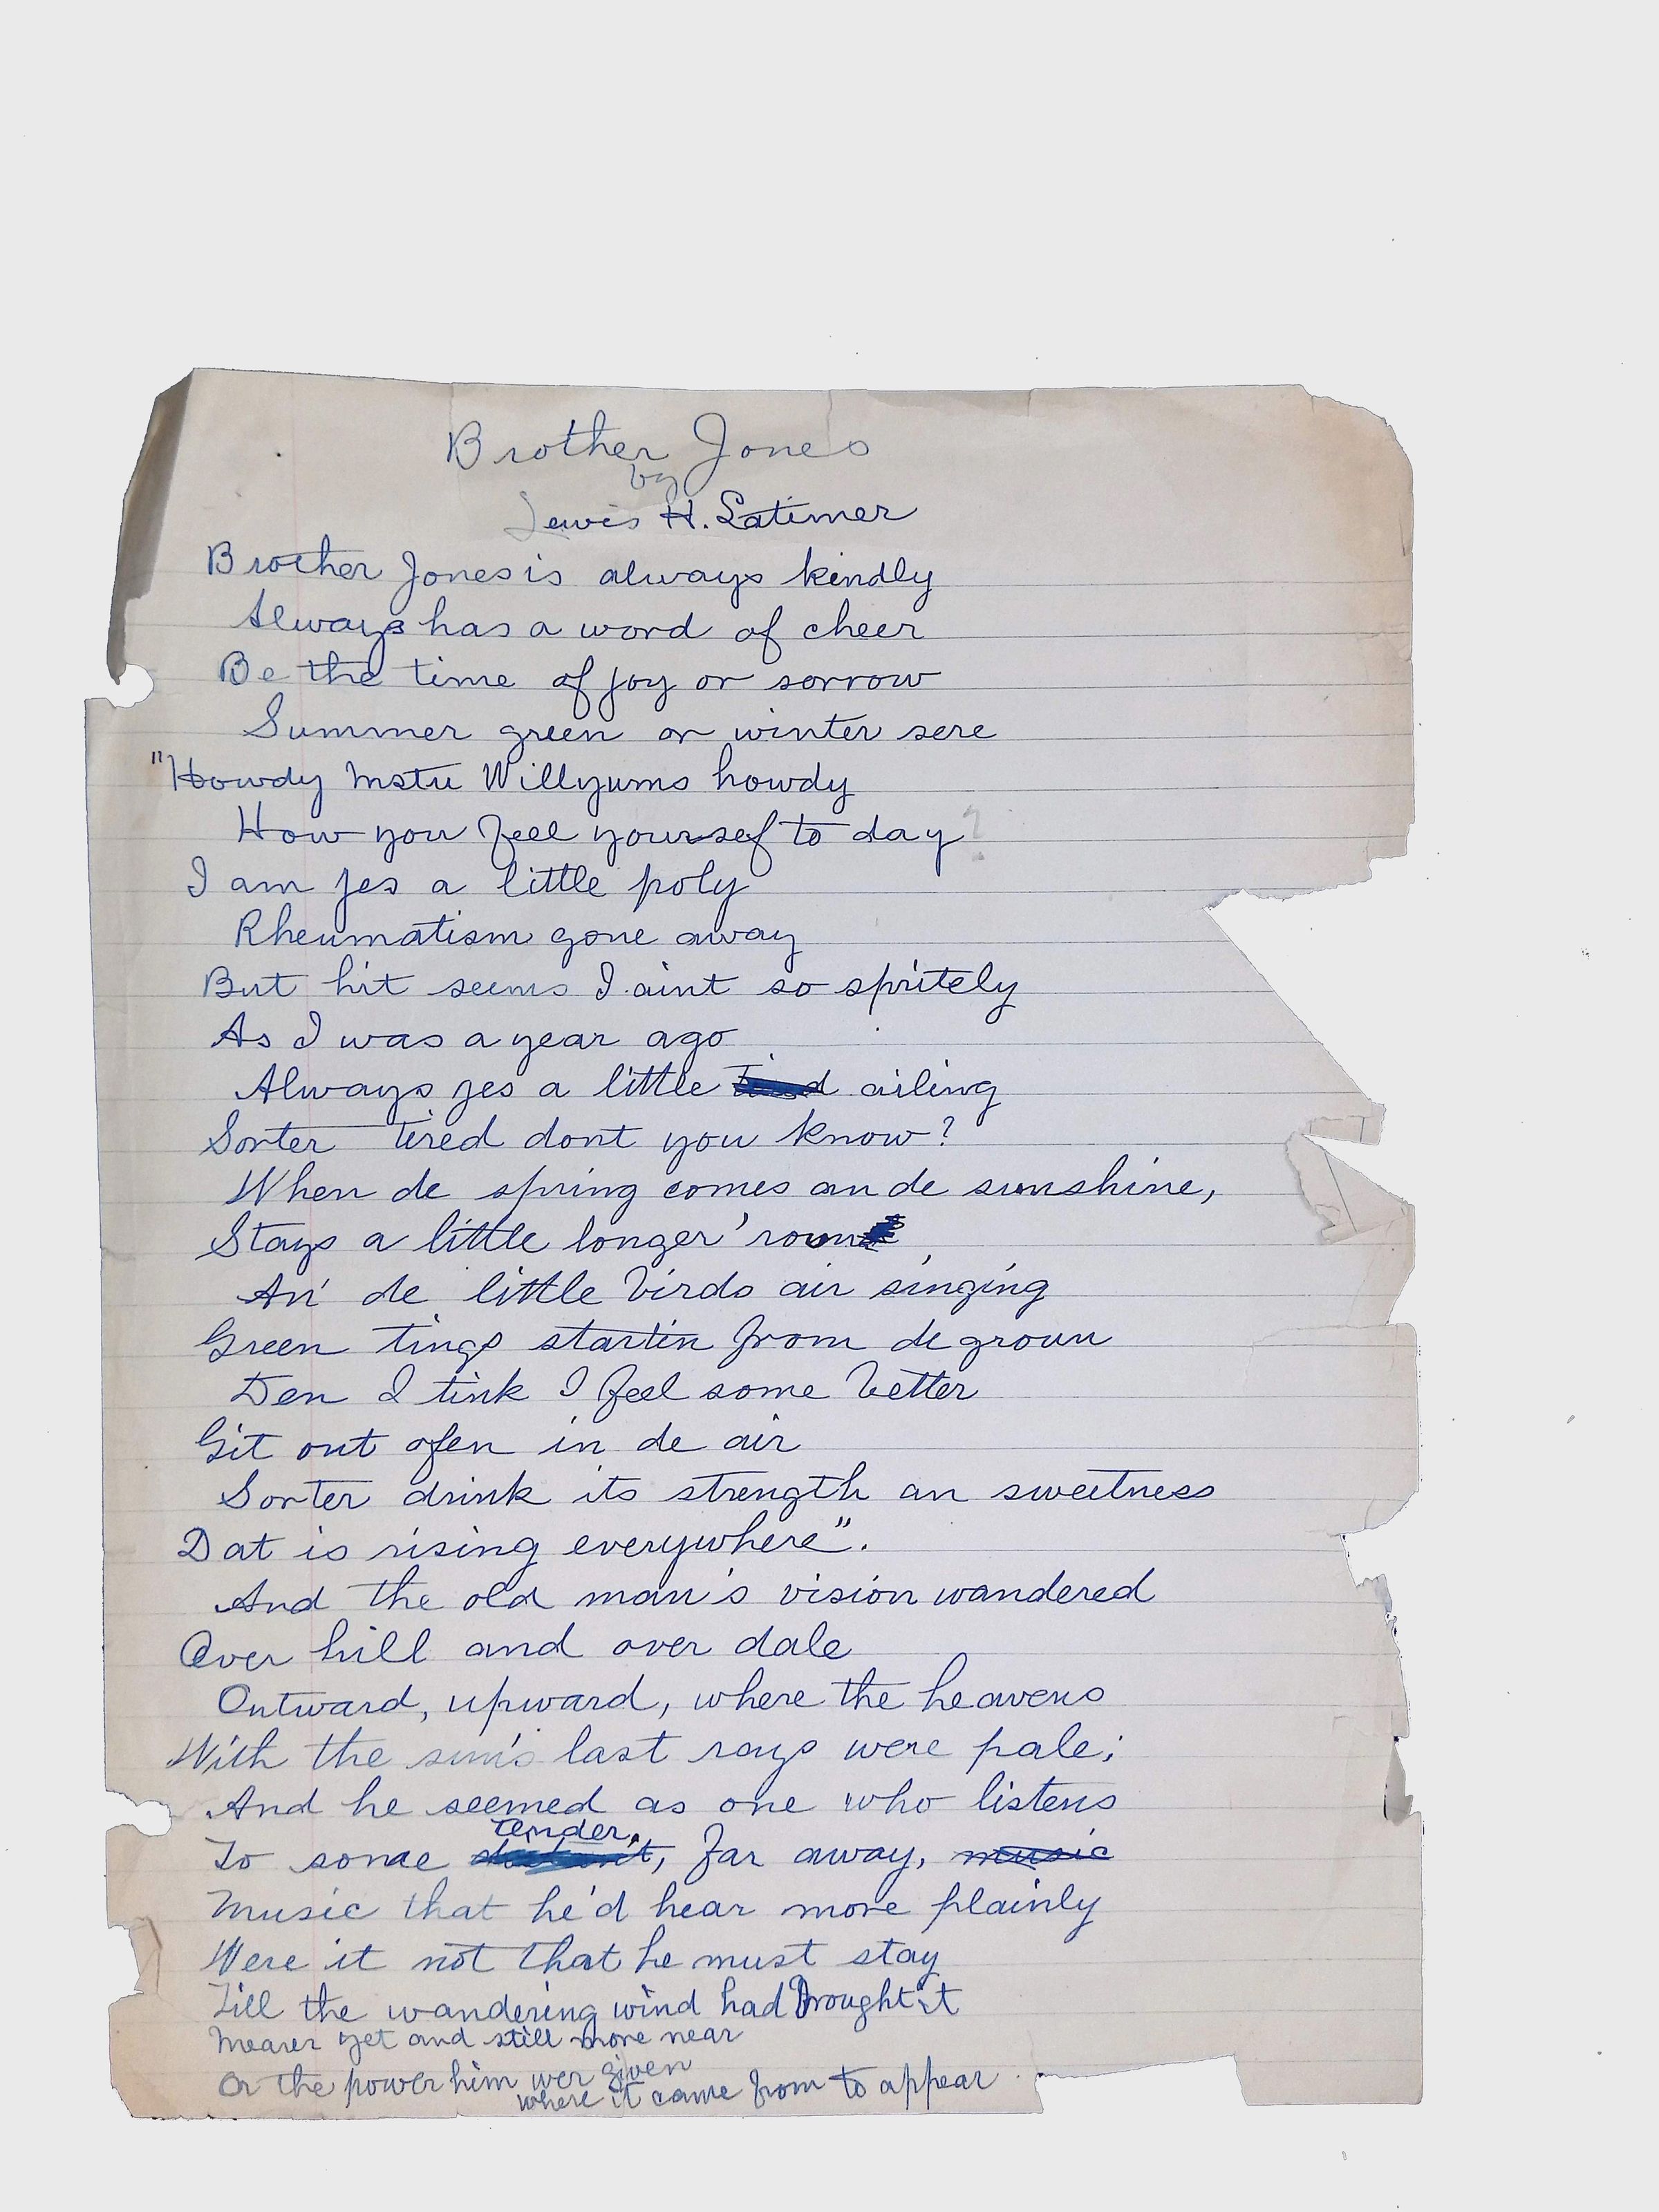 Brother Jones
by
Lewis H. Latimer
Brother Jones is always kindly
Always has a word of cheer
Be the time of joy or sorrow
Summer green or winter sere
"Howdy Mstu Willyums howdy
How you feel yoursef to day?
I am jes a little poly
Rheumatism gone away
But hit seems I aint so spritely
As I was a year ago
Always jes a little ailing
Sorter tired dont you know?
When de spring comes an de sunshine,
Stays a little longer 'roun
An' de little birds air singing
Green tings startin from de groun
Den I tink I feel some better
Git out ofen in de air
Sorter drink its strength an sweetness
Dat is rising everywhere".
And the old man's vision wandered
Over hill and over dale
Outward, upward, where the heavens
With the sun's last rays were pale;
And he seemed as one who listens
tender,
To some distant, far away, music
Music that he'd hear more plainly
Were it not that he must stay
Till the wandering wind had brought it
Nearer yet and still more near
Or the power him wer given
where it came from to appear